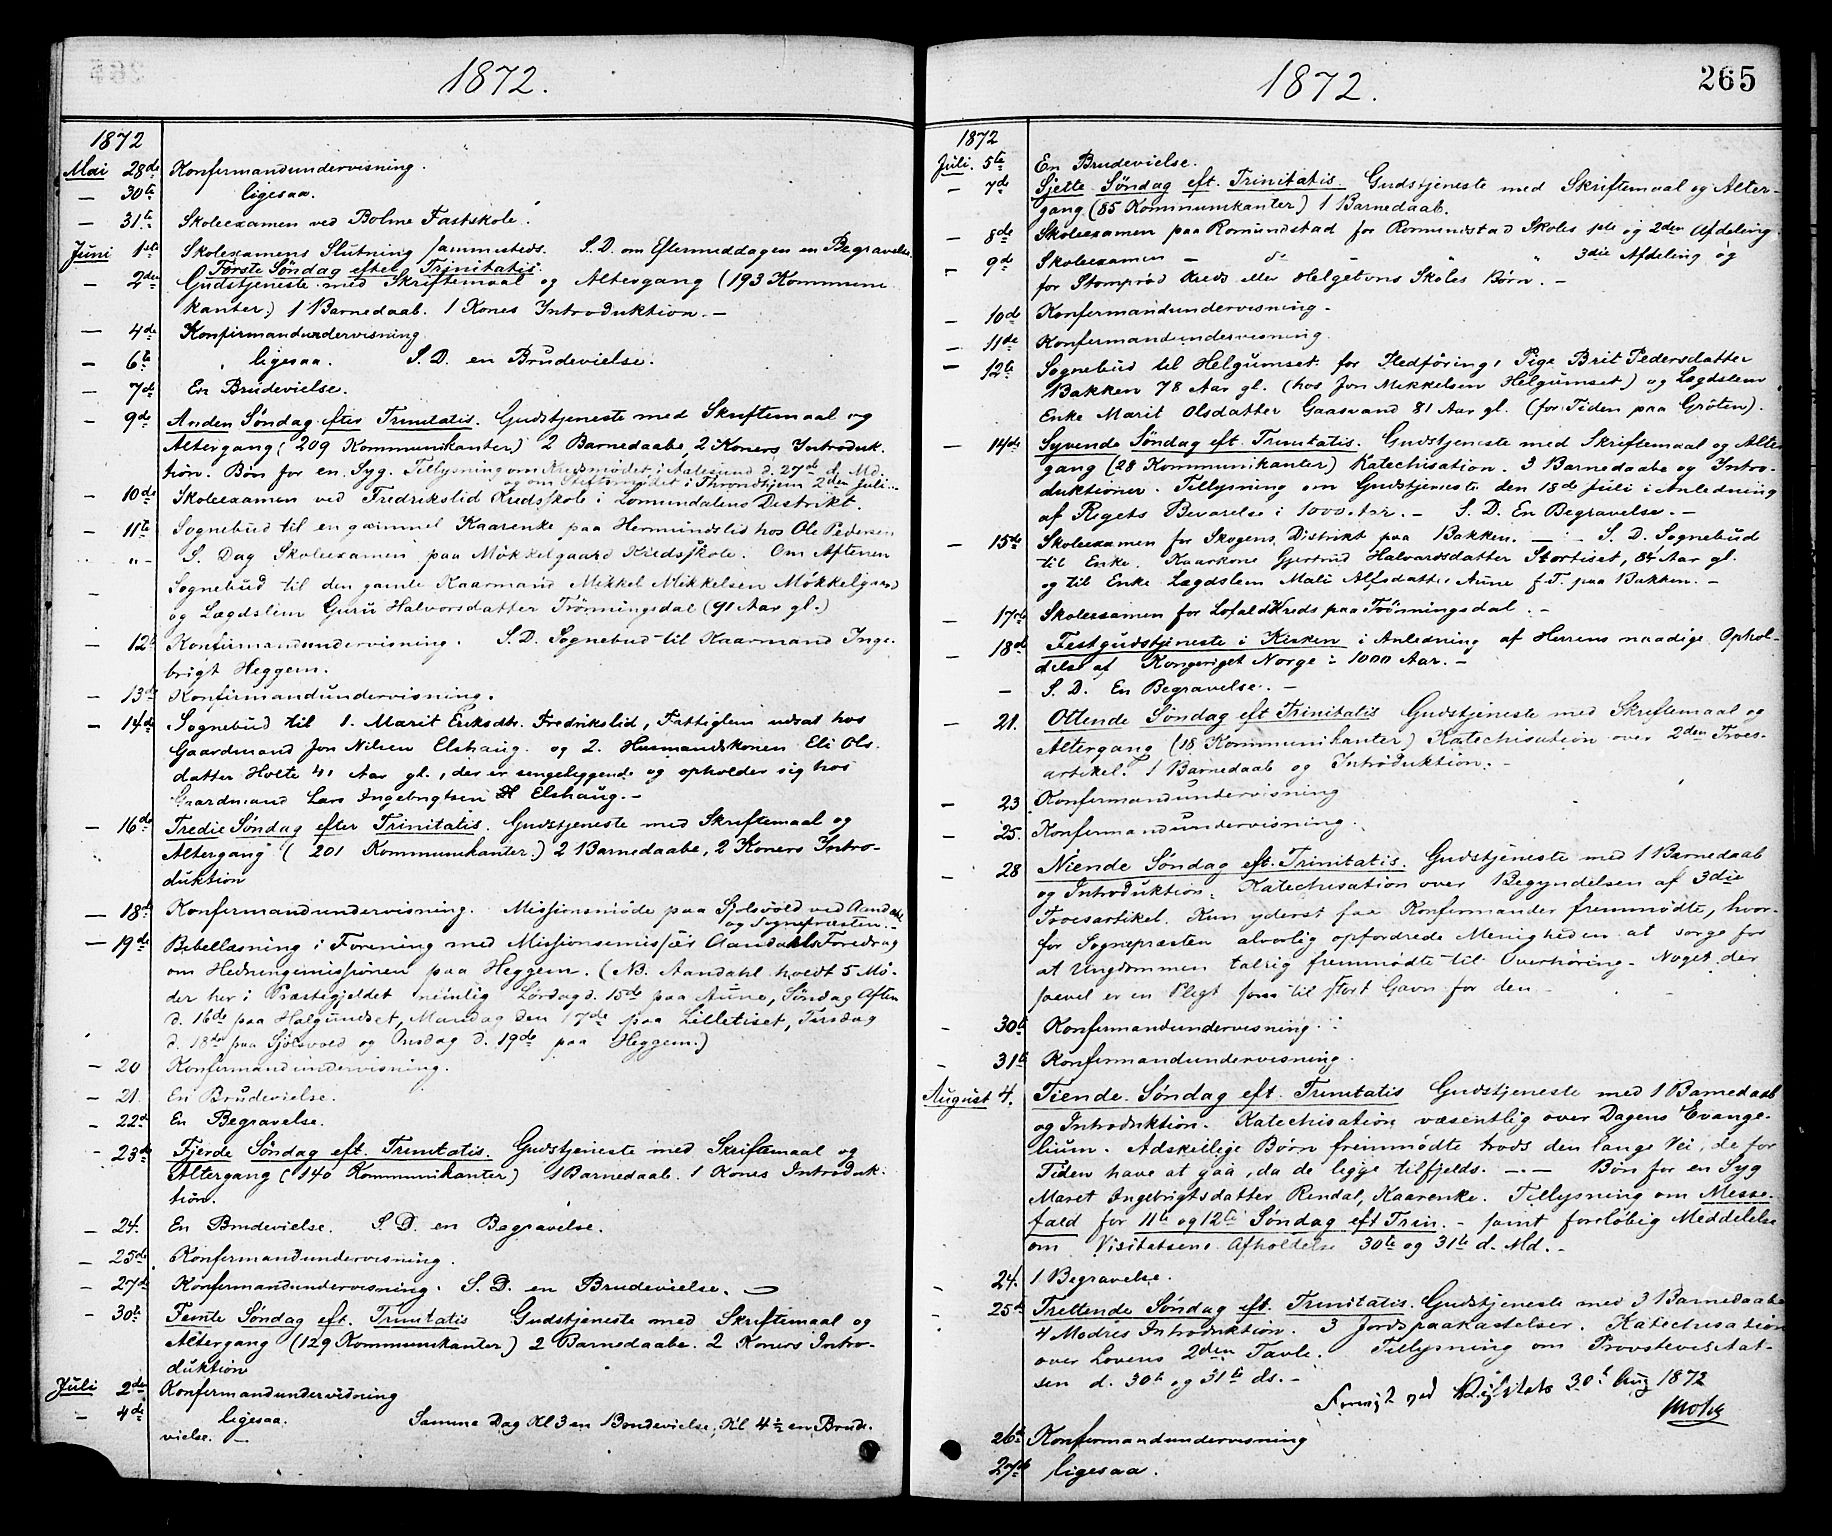 1872.
1872
Mai 28de Konfermandundervisning.
— 30te ligesaa.
— 31te Skoleexamen ved Bolme Fastskole.
Juni 1ste Skoleexamens Slutning sammesteds. S. D. om Eftermiddagen en Begravelse.
Første Søndag efter Trinitatis.
— 2den Gudstjeneste med Skriftemaal og Altergang (193 Kommuni
kanter.) 1 Barnedaab. 1 Kones Introduktion. —
— 4de Konfirmandundervisning
— 6te ligesaa. S. D. en Brudevielse.
— 7de En Brudevielse.
— 9de Anden Søndag efter Trinitatis. Gudstjeneste med Skriftemaal og
Altergang (209 Kommunikanter) 2 Barnedaabe, 2 Koners Introduk
tion. Bøn for en Syg. Tillysning om Kredsmødet i Aalesund d. 27de d. Md.
og om Stiftsmødet i Throndhjem 2den Juli. —
— 10de Skoleexamen ved Fredrikslid Kredsskole i Lomundalens Distrikt.
— 11te Sognebud til en gammel Kaarenke paa Hermundslid hos Ole Pedersen
— " — S. Dag Skoleexamen paa Møkkelgaard Kredsskole. Om Aftenen
Sognebud til den gamle Kaarmand Mekkel Mikkelsen Møkkelgaard
og Lægdslem Guru Halvorsdatter Trønningsdal (91 Aar gl.)
— 12te Konfirmandundervisning. S. D. Sognebud til Kaarmand Inge-
brigt Heggem.
— 13de Konfirmandundervisning.
— 14de Sognebud til 1. Marit Eriksdtr. Fredrikslid, Fattiglem udsat hos
Gaardmand Jon Nilsen Elshaug. og 2. Husmandskonen Eli Ols-
datter Holte 41 Aar gl., der er sengeliggende og opholder sig hos
Gaardmand Lars Ingebrigtsen Elshaug. —
— 16de Tredie Søndag efter Trinitatis. Gudstjeneste med Skriftemaal og
Altergang (201 Kommunikanter.) 2 Barnedaabe, 2 Koners Intro-
duktion
— 18de Konfermandundervisning. Missionsmøde paa Sjølsvold ved Aandahl
og Sognepræsten. —
— 19de Bibellæsning i Forening med Missionsemissær Aandahls Foredrag
om Hedningemissionen paa Heggem. (NB. Aandahl holdt 5 Mø-
der her i Præstegjeldet nemlig Lørdag d. 15de paa Aune, Søndag Aften
d. 16de paa Halgundset, Mandag den 17de paa Lilletiset, Tirsdag
d. 18de paa Sjølsvold og Onsdag d. 19de paa Heggem.)
— 20 Konfermandundervisning.
— 21. En Brudevielse.
— 22de En Begravelse.
— 23de Fjerde Søndag eft. Trinitatis. Gudstjeneste med Skriftemaal og
Altergang (140 Kommunikanter) 1 Barnedaab. 1 Kones Introduk-
tion.
— 24. En Brudevielse. S. D. en Begravelse.
— 25de Konfermandundervisning.
— 27de Konfermandundervisning. S. D. en Brudevielse. —
— 30te Femte Søndag eft. Trinitatis Gudstjeneste med Skriftemaal og
Altergang (129 Kommunikanter) 2 Barnedaabe. 2 Koners Intro-
duktion
Juli 2den Konfermandundervisning
— 4de ligesaa. Samme Dag Kl 3 en Brudevielse, Kl. 4½ en Brude-
vielse. —
1872.
265
1872
Juli. 5te En Brudevielse.
— 7de Sjette Søndag eft. Trinitatis. Gudstjeneste med Skriftemaal og Alter-
gang (85 Kommunikanter) 1 Barnedaab.
— 8de Skoleexamen paa Romundstad for Romundstad Skoles 1ste og 2den Afdeling.
— 9de Skoleexamen — do — " " 3die Afdeling og
for Stomprød Kreds eller Helgetons Skoles Børn. —
— 10de Konfermandundervisning.
— 11de Konfermandundervisning.
— 12te Sognebud til Helgumset for Pige Brit Pedersdatter
Bakken 78 Aar gl. (hos Jon Mekkelsen Helgumset) og Lægdslem
Enke Marit Olsdatter Gaasvand 81 Aar gl. (for Tiden paa Grøten).
— 14de Syvende Søndag eft. Trinitatis. Gudstjeneste med Skriftemaal og Alter
gang (28 Kommunikanter) Katechisation. 3 Barnedaabe og Intro-
duktioner. Tillysning om Gudstjeneste den 18de Juli i Anledning
af Rigets Bevarelse i 1000 Aar. — S. D. En Begravelse. —
— 15de Skoleexamen for Skogens Distrikt paa Bakken. — S. D. Sognebud
til Enke. Kaarkone Gjertrud Halvardsdatter Stortiset, 84 Aar gl.
og til Enke Lægdslem Mali Alfsdatter Aune f. T. paa Bakken. —
— 17de Skoleexamen for Lofald Kreds paa Trønningsdal. —
— 18de Festgudstjeneste i Kirken i Anledning af Herrens naadige Ophol-
delse af Kongeriget Norge i 1000 Aar. —
— S. D. En Begravelse. —
— 21. Ottende Søndag eft Trinitatis Gudstjeneste med Skriftemaal og
Altergang (18 Kommunikanter) Katechisation over 2den Troes-
artikel. 1 Barnedaab og Introduktion. —
— 23 Konfermandundervisning
— 25. Konfermandundervisning.
— 28 Niende Søndag eft. Trinitatis. Gudstjeneste med 1 Barnedaab
og Introduktion. Katechisation over Begyndelsen af 3die
Troesartikel. Kun yderst faa Konfermander fremmødte, hvor-
for Sognepræsten alvorlig opfordrede Menigheden at sørge for
at Ungdommen talrig fremmødte til Overhøring. Noget der
saavel er en Pligt som til stort Gavn for den —
— 30te Konfermandundervisning.
— 31te Konfermandundervisning.
August 4. Tiende Søndag eft. Trinitatis Gudstjeneste med 1 Barnedaab
og Introduktion. Katechisation væsentlig over Dagens Evange-
lium. Adskellige Børn fremmødte trods den lange Vei, de for
Tiden have at gaa, da de ligge tilfjelds. — — Bøn for en Syg
Maret Ingebrigtsdatter Rindal, Kaarenke. Tillysning om Messe-
fald for 11te og 12te Søndag eft Trin. — samt foreløbig Meddelelse
om Visitatsens Afholdelse 30te og 31te d. Md. —
— 24. 1 Begravelse.
— 25de Trettende Søndag eft. Trinitatis. Gudstjeneste med 3 Barnedaabe
4 Mødres Introduktion. 3 Jordspaakastelser. Katechisation
over Lovens 2den Tavle. Tillysning om Provstevisitat-
sen d. 30te og 31te ds. —
Visitats 30te Aug 1872
26de Konfermandundervisning
27de ligesaa.